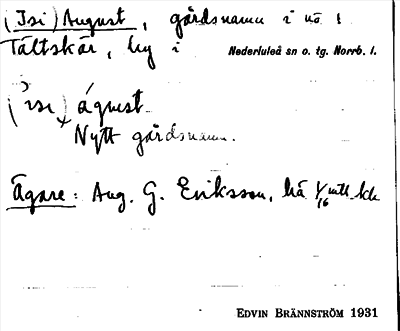 (Isi) August, gårdsnamn i nö 1
Tältskär, by i Nederluleå sn o. tg. Norrb. l.
águst
Nytt gårdsnamn.
Ägare: Aug. G. Eriksson, hä 1/16 mtl
EDVIN BRÄNNSTRÖM 1931